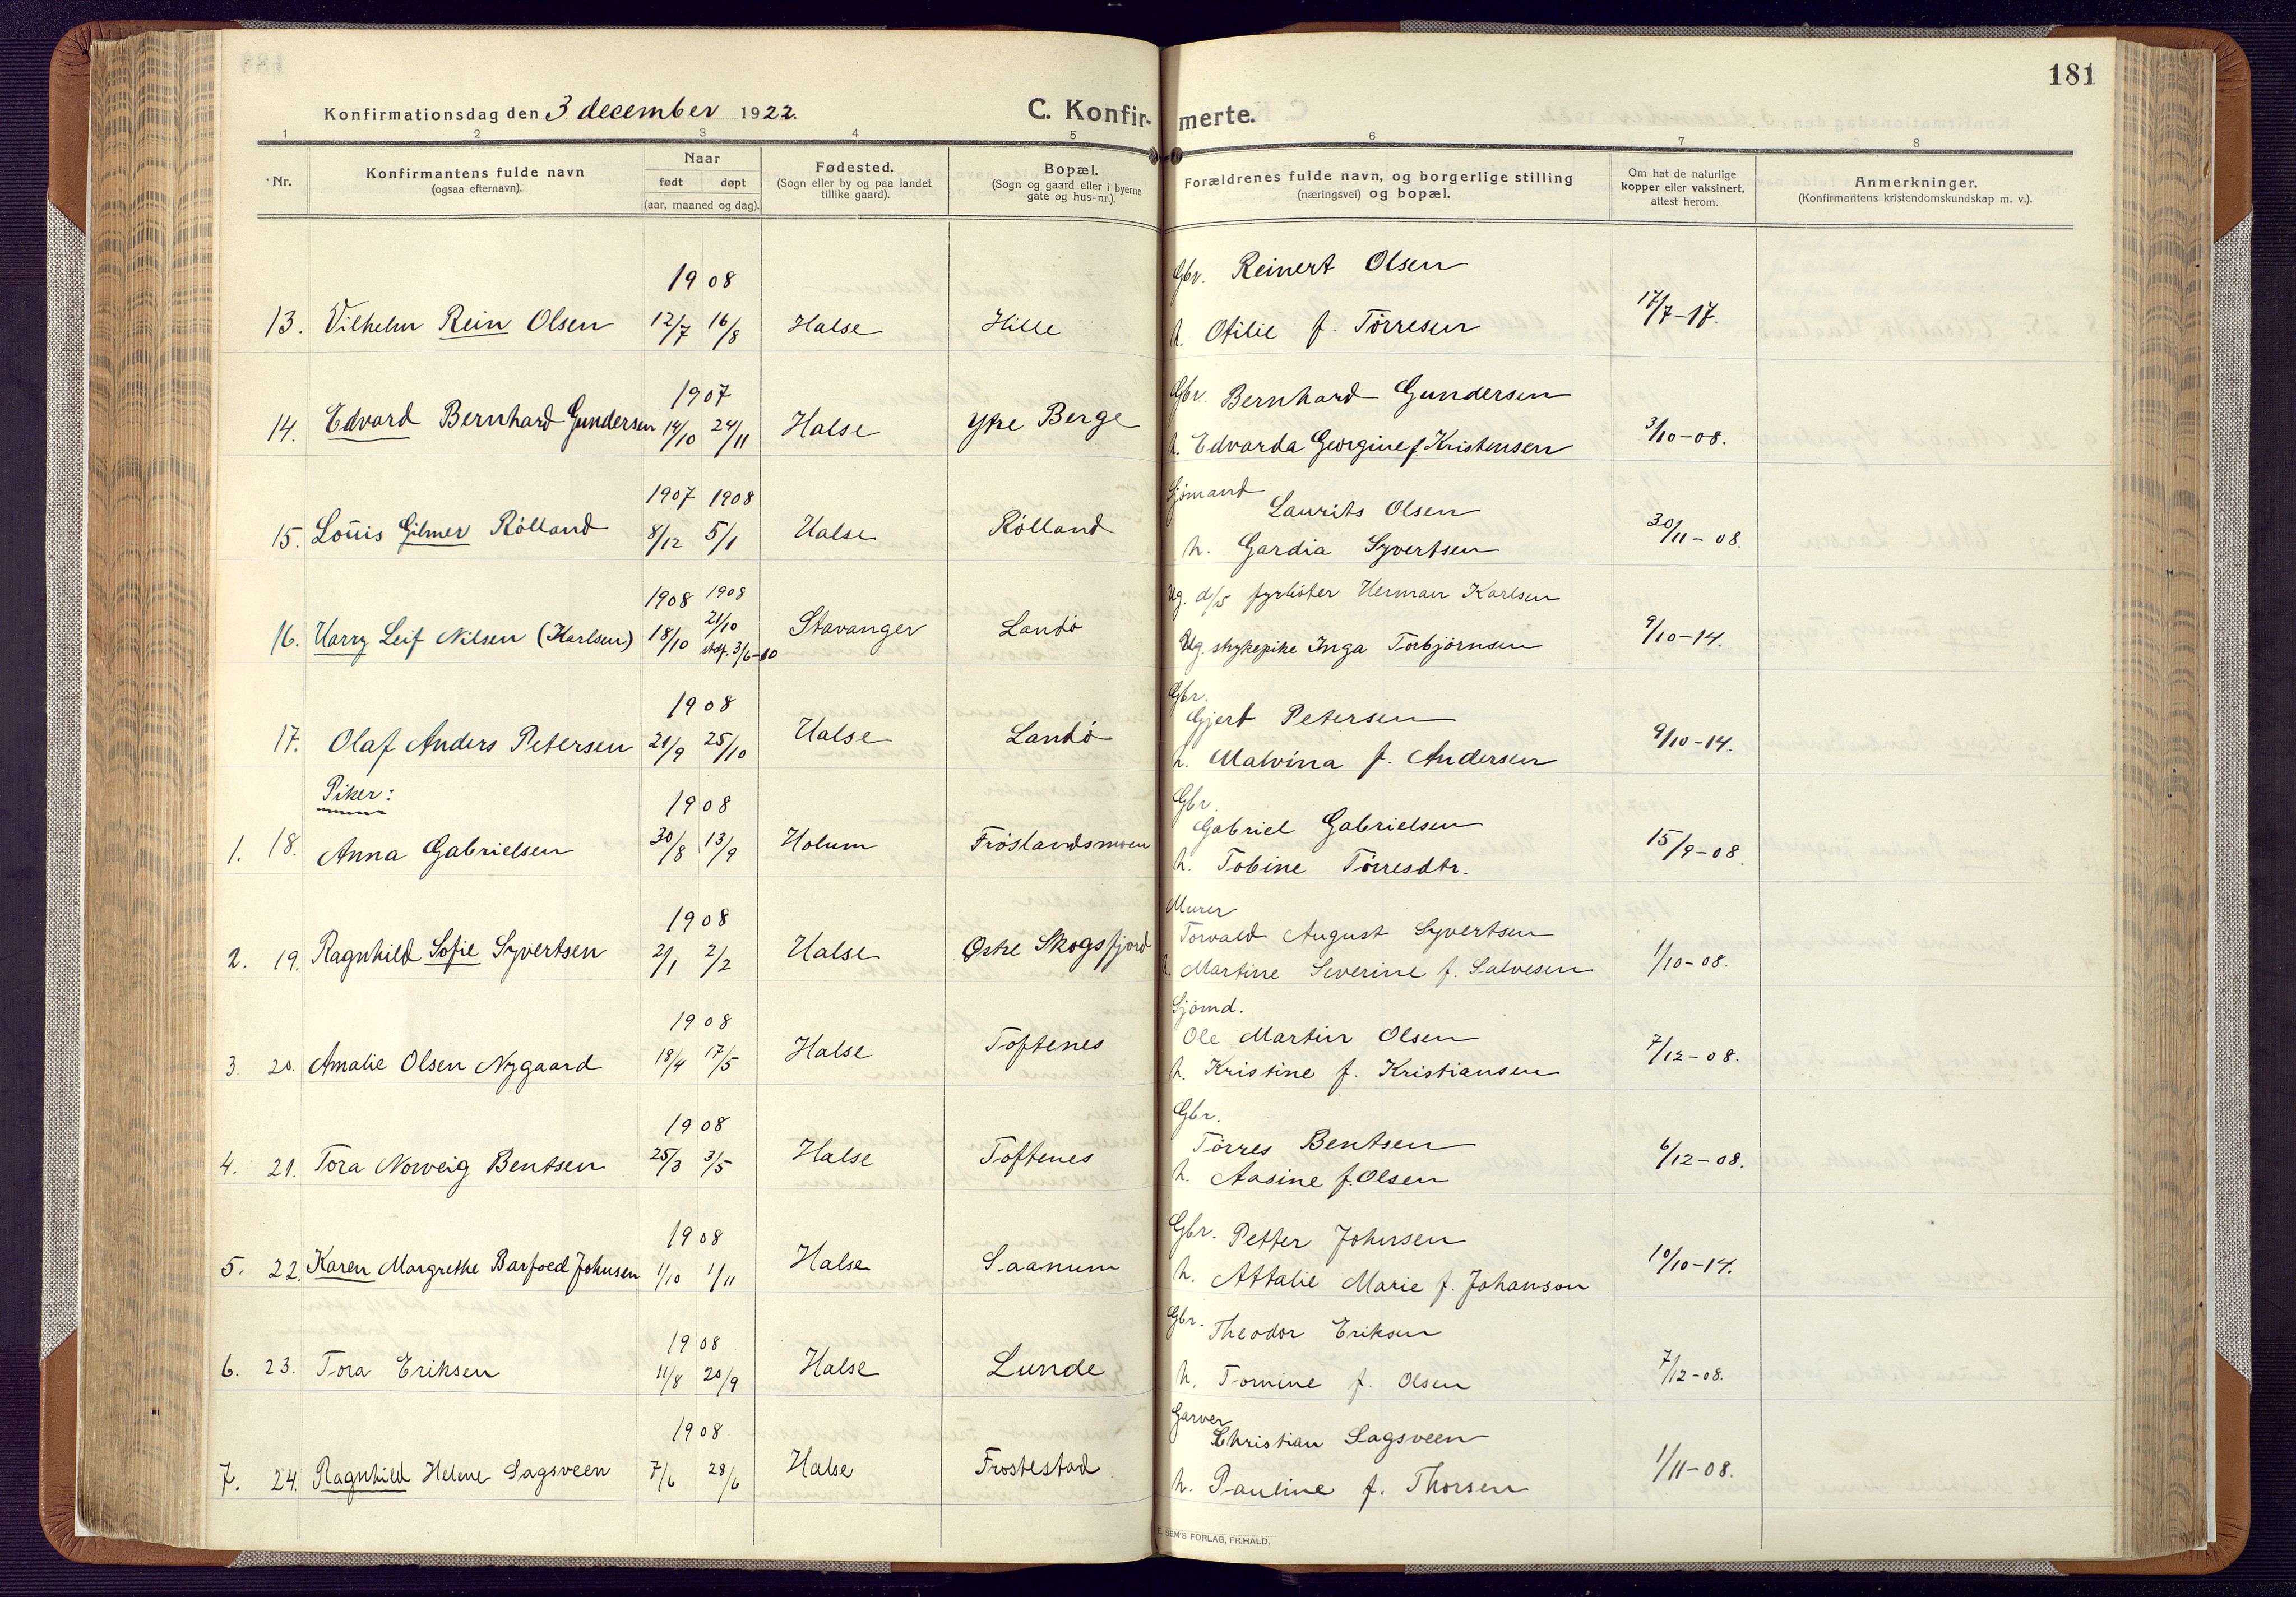 181
Konfirmationsdag den 3 december 1922.
C. Konfir- merte.
1 2 3 4 5 6 7 8
Nr.
Konfirmantens fulde navn
(ogsaa efternavn).
Naar
født døpt
(aar, maaned og dag).
Fødested.
(Sogn eller by og paa landet
tillike gaard).
Bopæl.
(Sogn og gaard eller i byerne
gate og hus-nr.).
Forældrenes fulde navn, og borgerlige stilling
(næringsvei) og bopæl.
Om hat de naturlige
kopper eller vaksinert,
attest herom.
Anmerkninger.
(Konfirmantens kristendomskundskap m. v.).
1908 Gbr. Reinert Olsen
13. Vilhelm Rein Olsen 12/7 16/8 Halse Hille h. Otilie f. Tørresen 17/7-17.
1907 Gbr. Bernhard Gundersen
14. Edvard Bernhard Gundersen 14/10 24/11 Halse Ytre Berge h. Edvarda Georgine f. Kristensen 3/10-08.
1907 1908 Sjømand Laurits Olsen
15. Louis Gilmer Rølland 8/12 5/1 Halse Rølland h. Gardia Syvertsen 30/11-08.
1908 1908 Ug. d/s fyrbøter Herman Karlsen
16. Harry Leif Nilsen (Karlsen) 18/10 21/10 stadf. 3/6-10 Stavanger Landø Ug. strykepike Inga Torbjørnsen 9/10-14.
1908 Gbr. Gjert Petersen
17. Olaf Anders Petersen 21/9 25/10 Halse Landø h. Malvina f. Andersen 9/10-14.
Piker:
1908 Gbr. Gabriel Gabrielsen
1. 18. Anna Gabrielsen 30/8 13/9 Holum Frøslandsmoen h. Tobine Tørresdtr. 15/9-08.
1908 Murer Torvald August Syvertsen
2. 19. Ragnhild Sofie Syvertsen 2/1 2/2 Halse Østre Skogsfjord h. Martine Severine f. Salvesen 1/10-08.
1908 Sjømd. Ole Martin Olsen
3. 20. Amalie Olsen Nygaard 18/4 17/5 Halse Toftenes h. Kristine f. Kristiansen 7/12-08.
1908 Gbr. Tørres Bentsen
4. 21. Tora Norveig Bentsen 25/3 3/5 Halse Toftenes h. Aasine f. Olsen 6/12-08.
1908 Gbr. Petter Johnsen
5. 22. Karen Margrethe Barfoed Johnsen 1/10 1/11 Halse Saanum h. Attalie Marie f. Johanson 10/10-14.
1908 Gbr. Theodor Eriksen
6. 23. Tora Eriksen 11/8 20/9 Halse Lunde h. Tomine f. Olsen 7/12-08.
1908 Garver Christian Sagsveen
7. 24. Ragnhild Helene Sagsveen 7/6 28/6 Halse Frostestad h. Pauline f. Thorsen 1/11-08.
E. SEM'S FORLAG, FR.HALD.